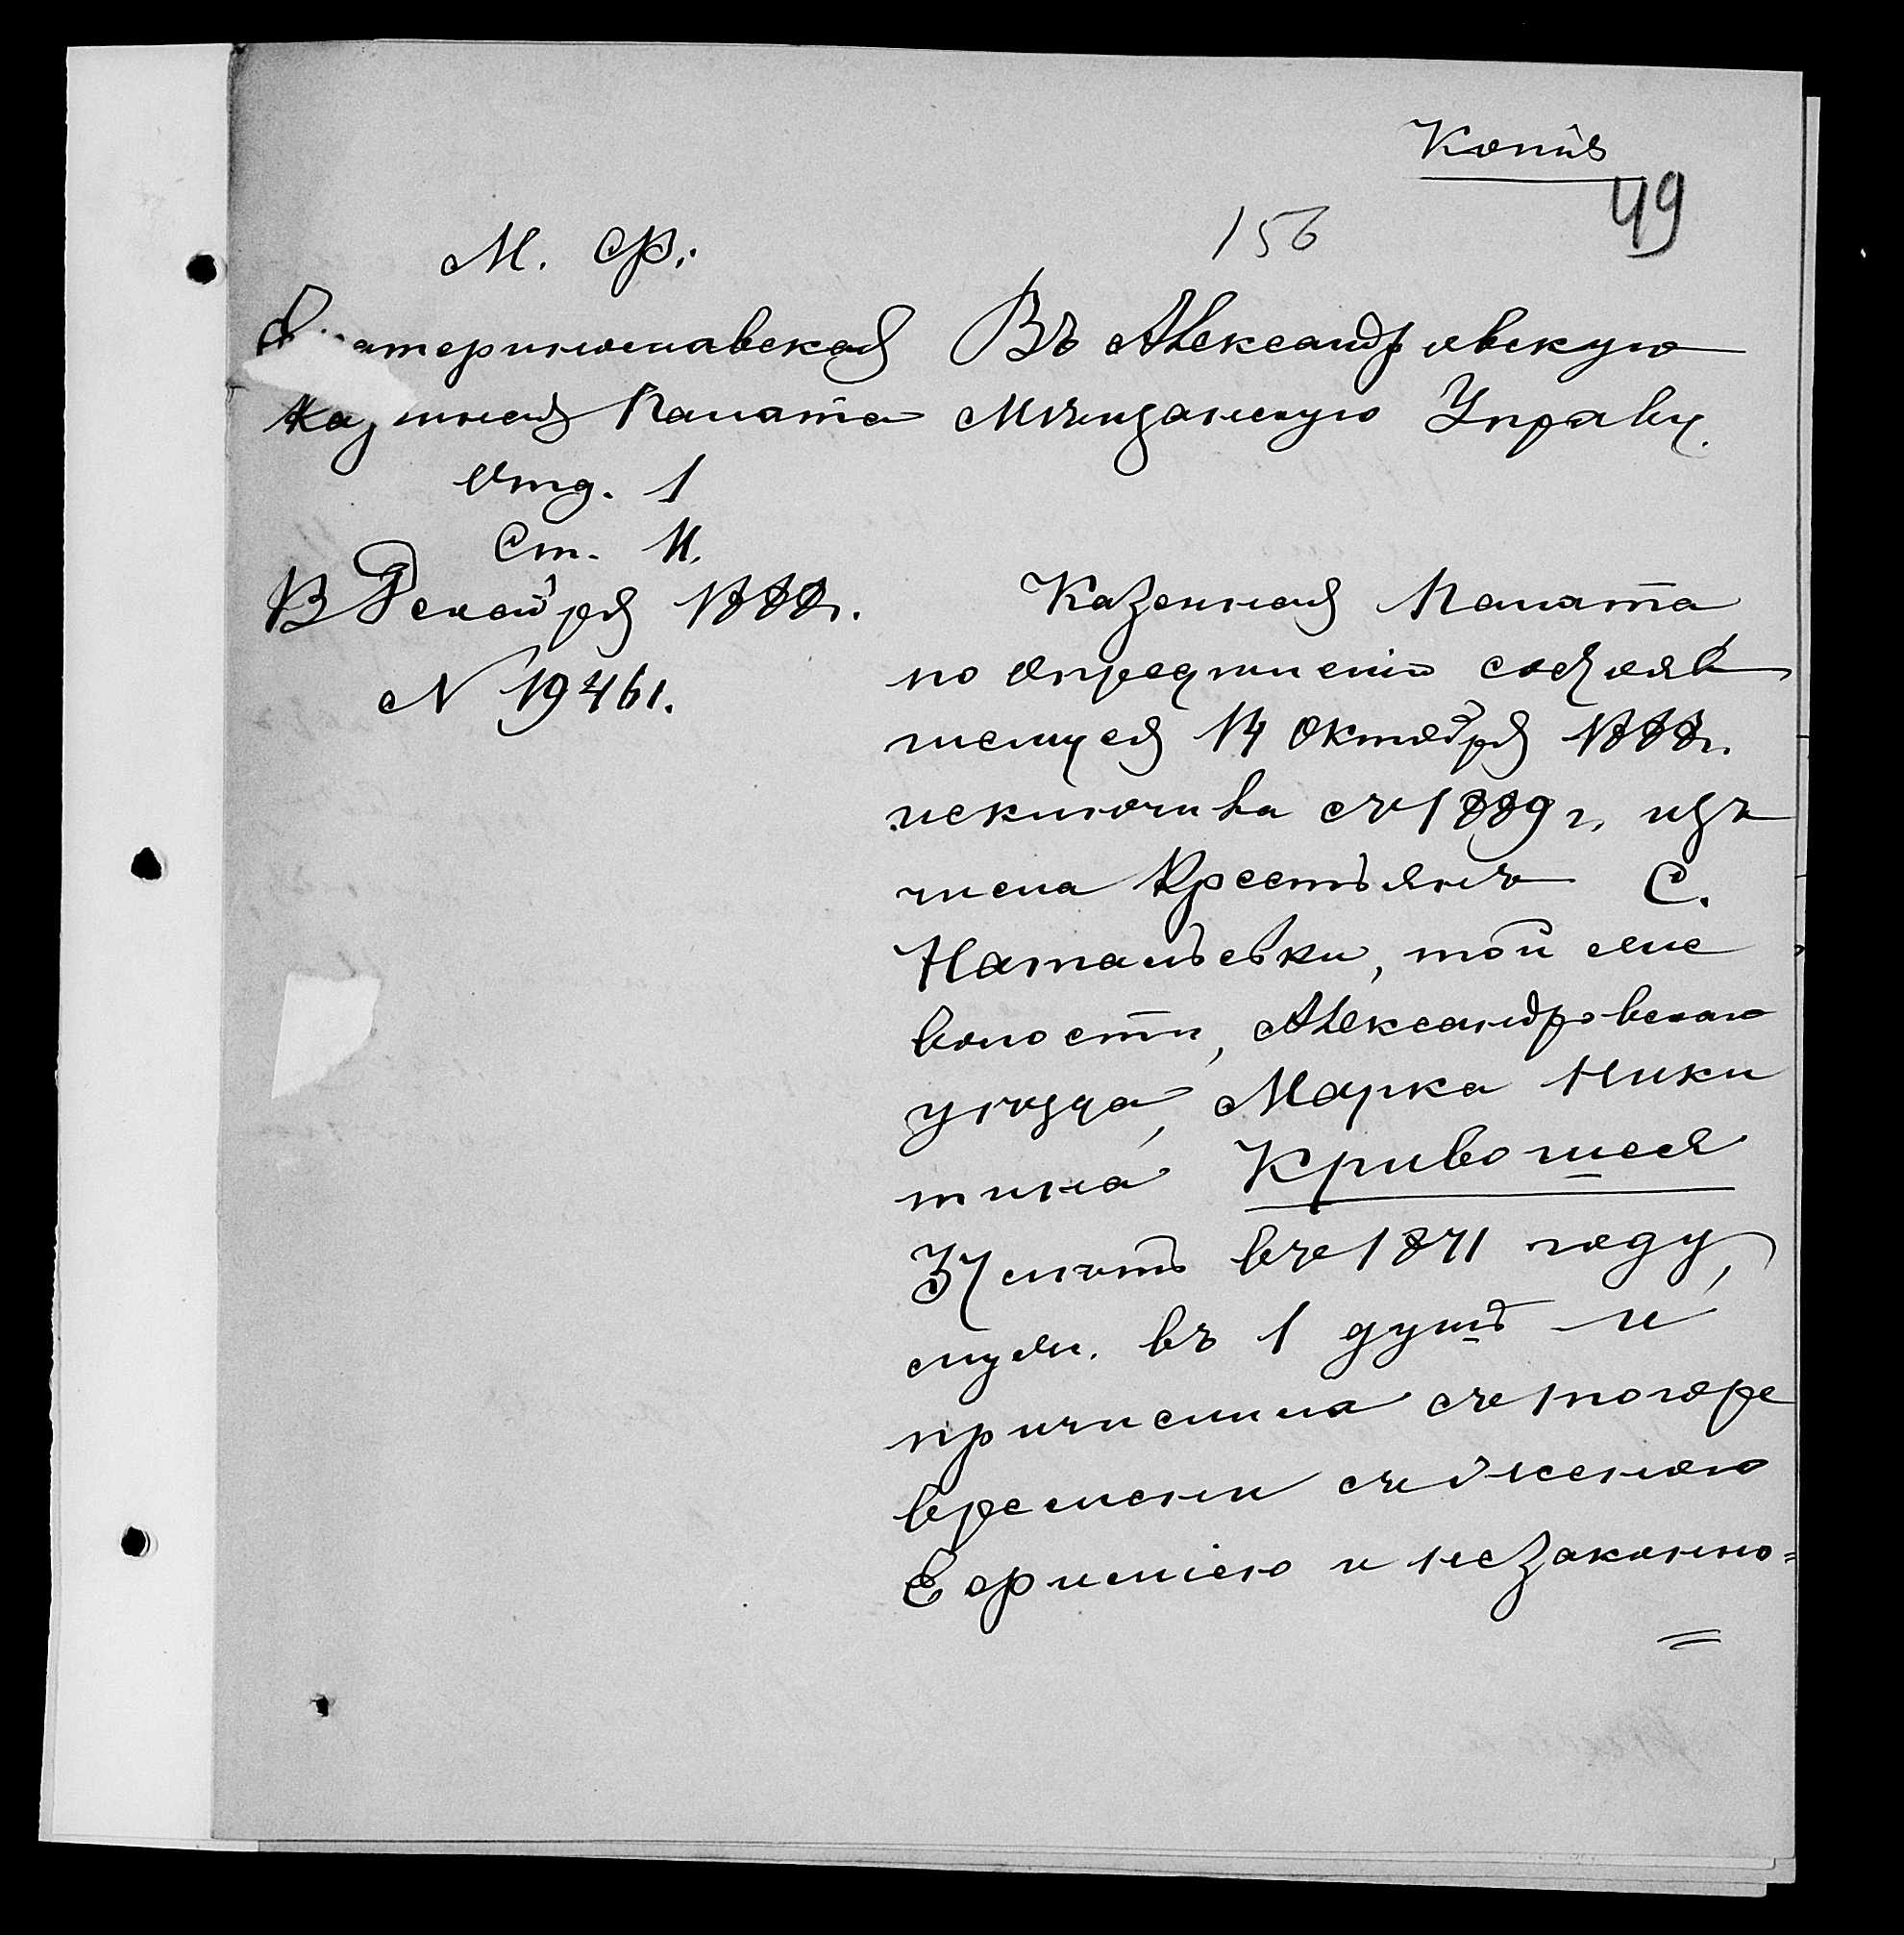 Копія
49
156
М. Ф.
Екатеринославская
Казенная Палата
Отд. 1
Ст. II.
Декабря 1888 г.
N 19461.
Въ Александровскую
Мѣщанскую Управу.
Казенная Палата
по опредѣленію состояв
шемуся 14 Октября 1888 г.
исключила съ 1889 г. изъ
числа крестьянъ С.
Натальевки, той же
волости, Александровскаго
уѣзда, Марка Ники
тина Кривошея
37 лѣтъ въ 1871 году,
мужч. въ 1 душѣ и
причислила съ того же
времени съ женою
Ефиміею и незаконно=